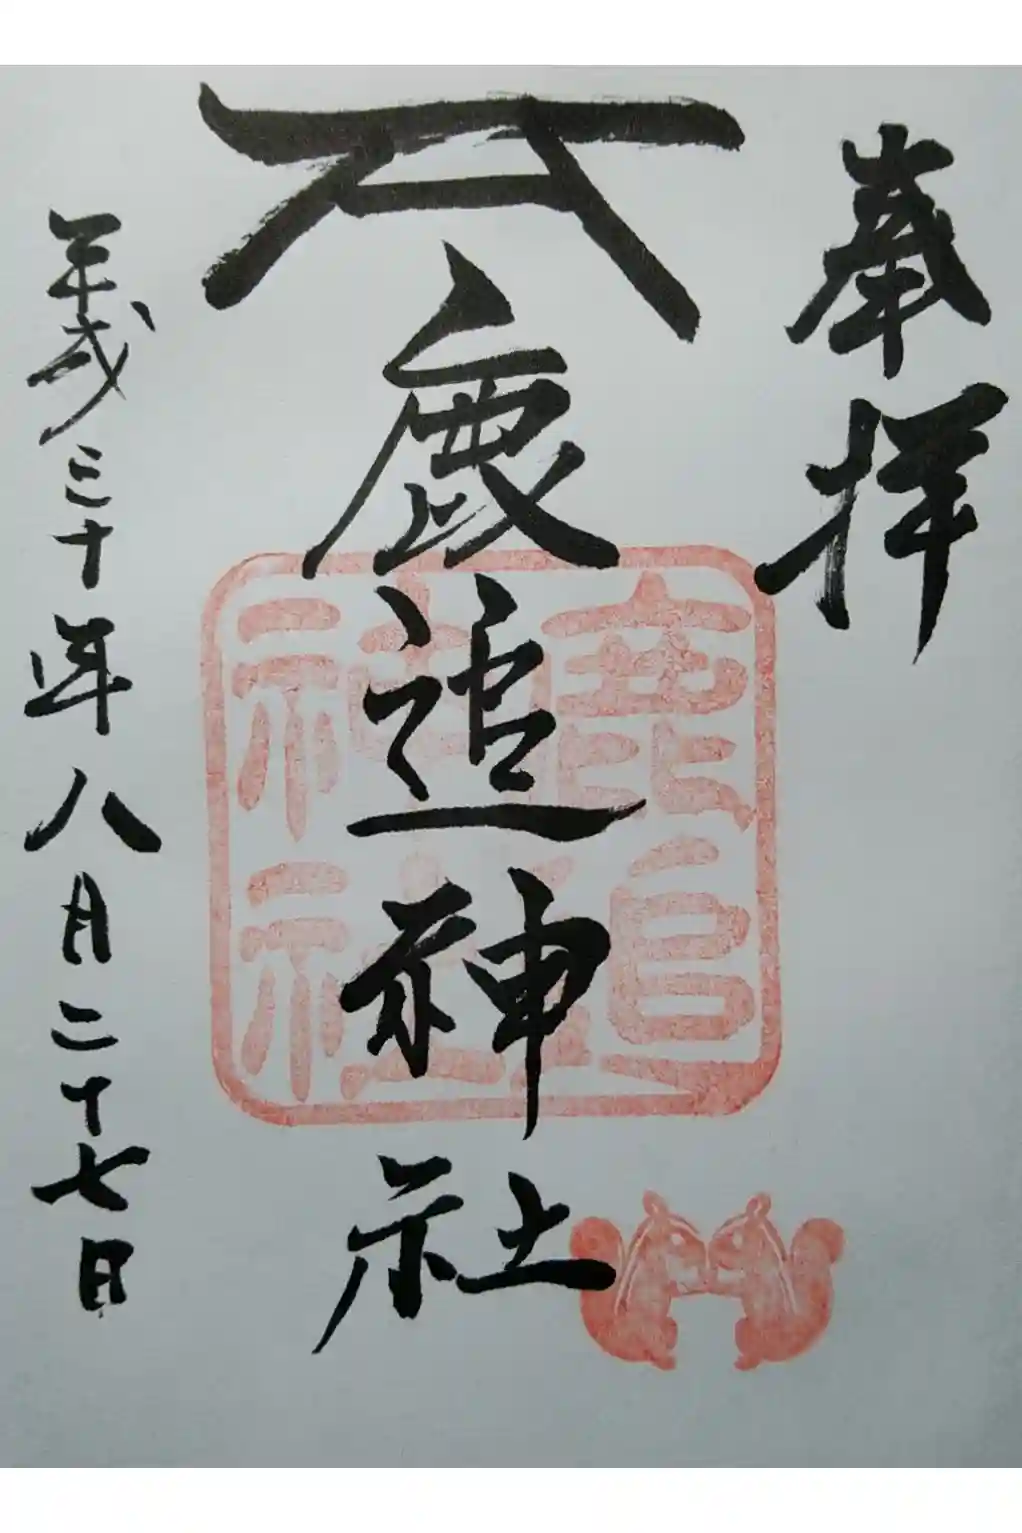 奉拝
鹿追神社
鹿追
神社
平成三十年八月二十七日